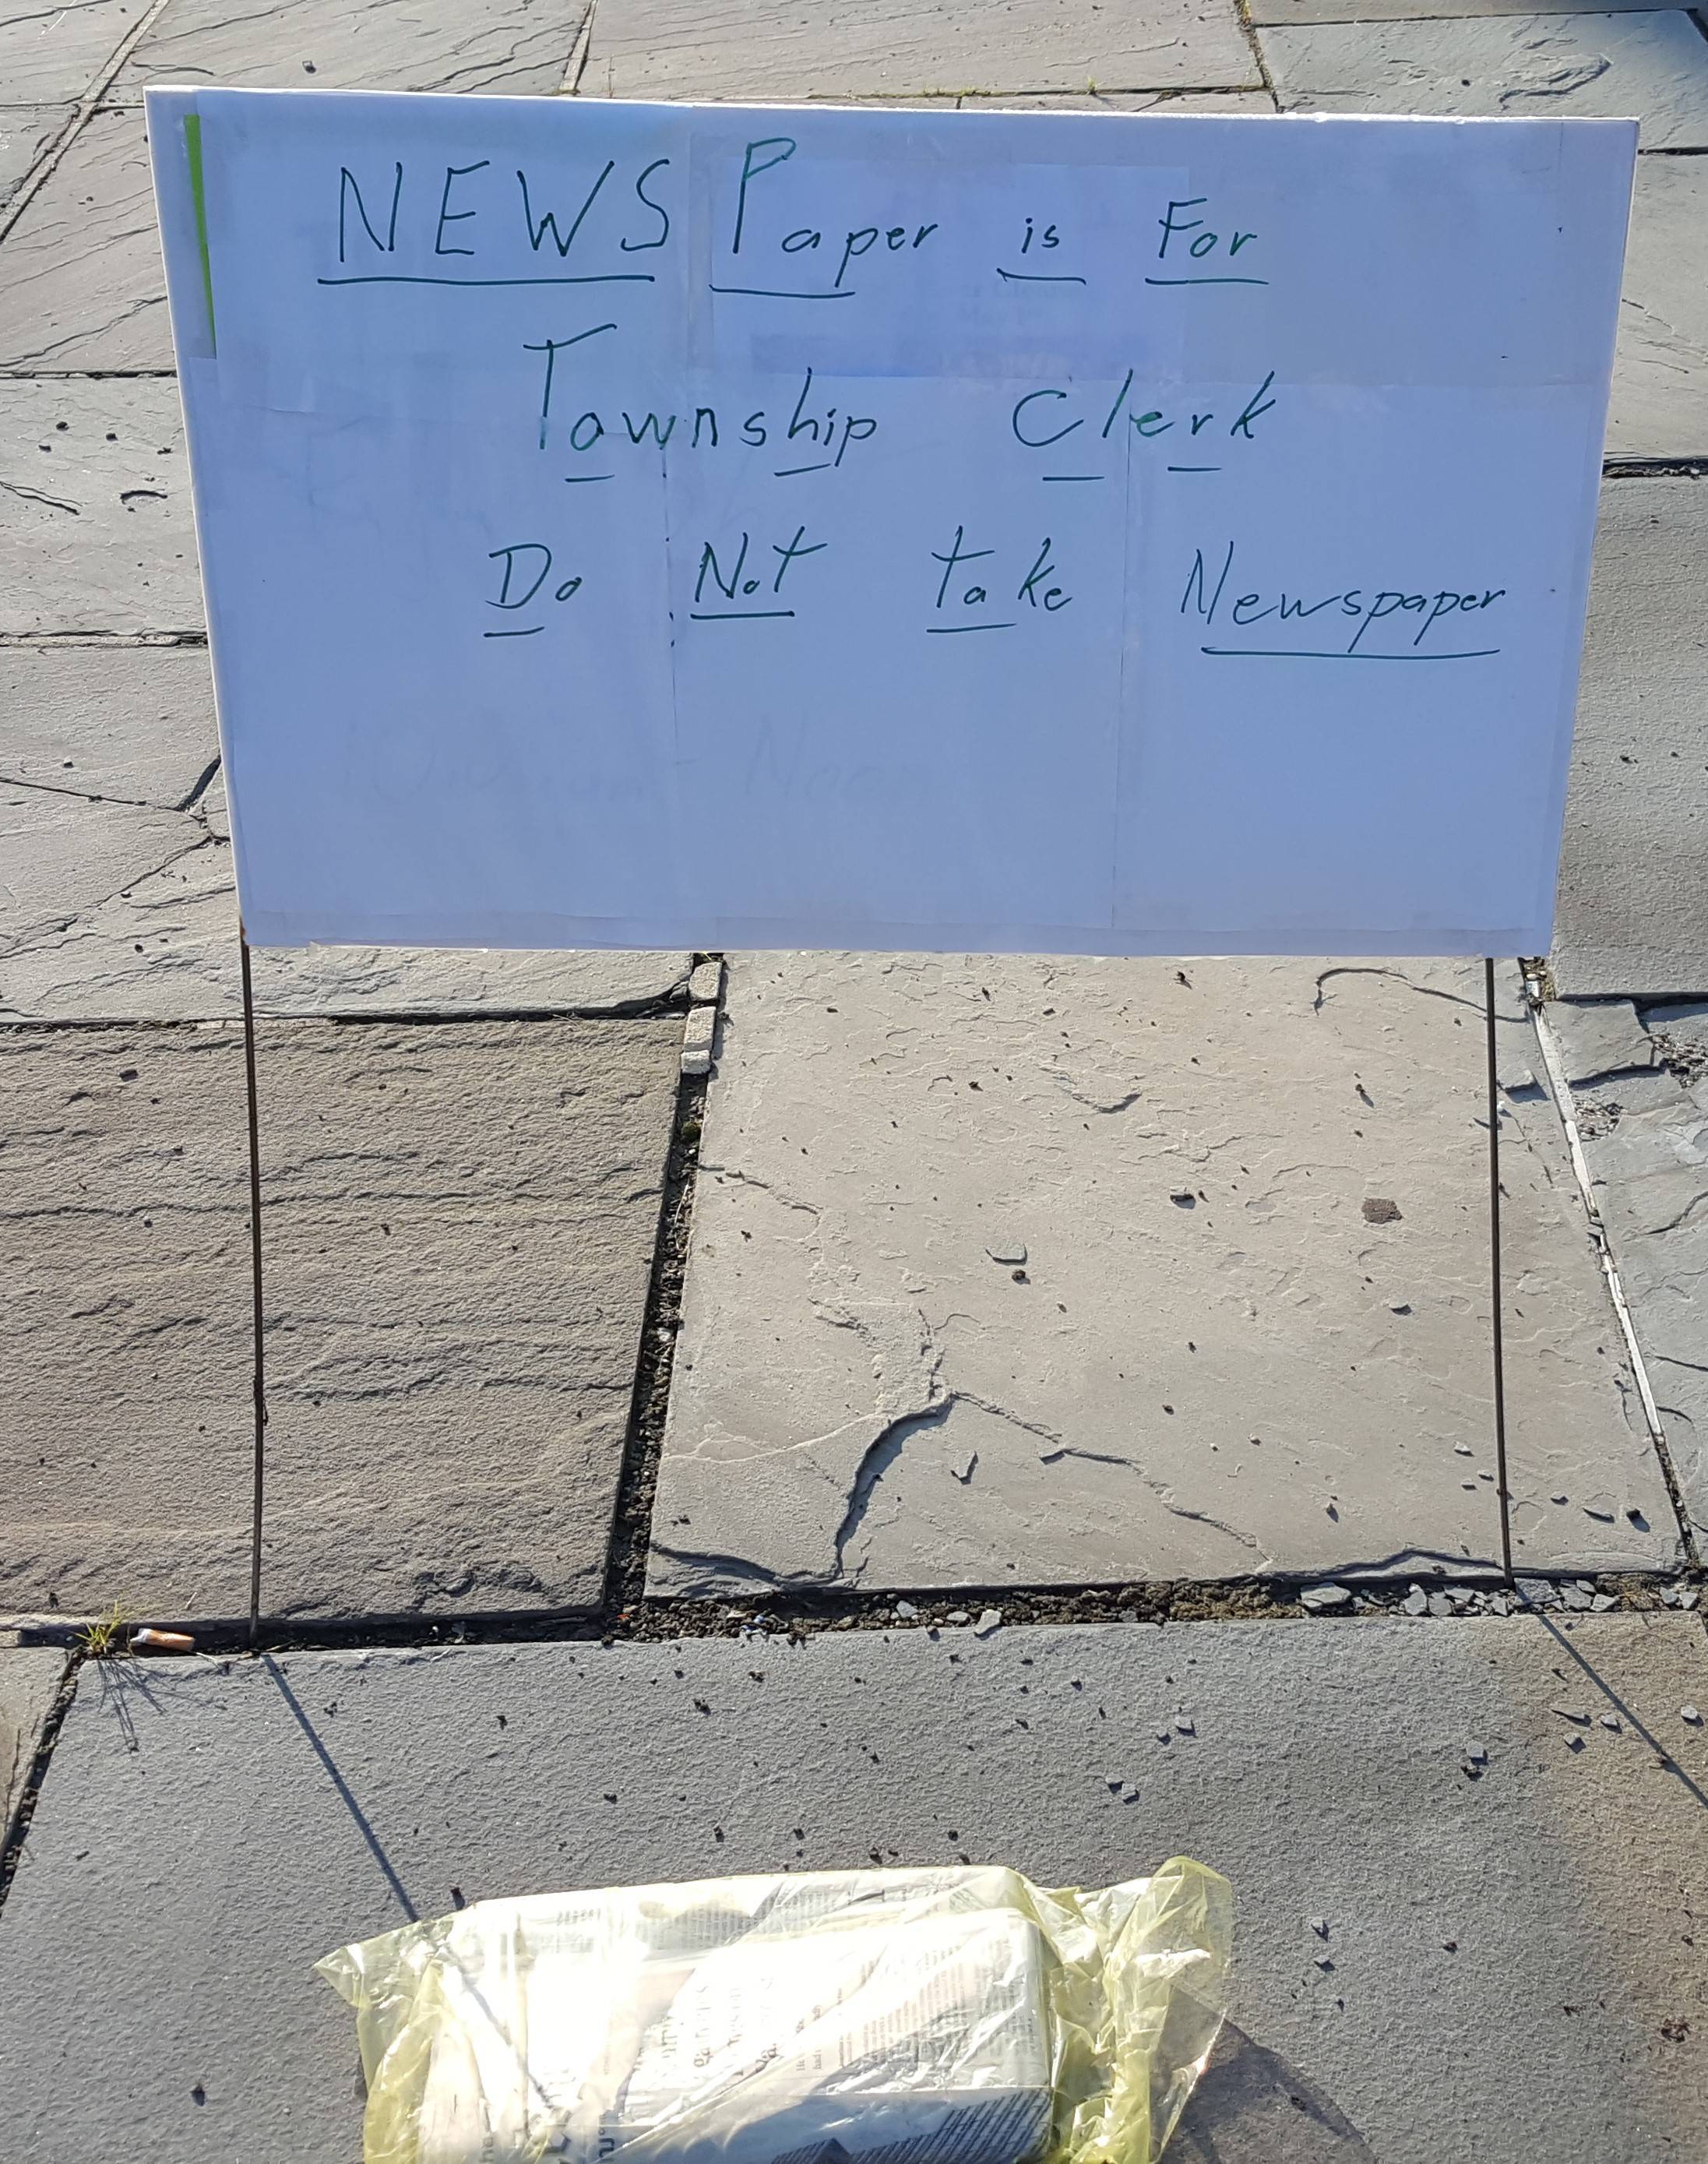 NEWS Paper is For
Township Clerk
Do Not take Newspaper